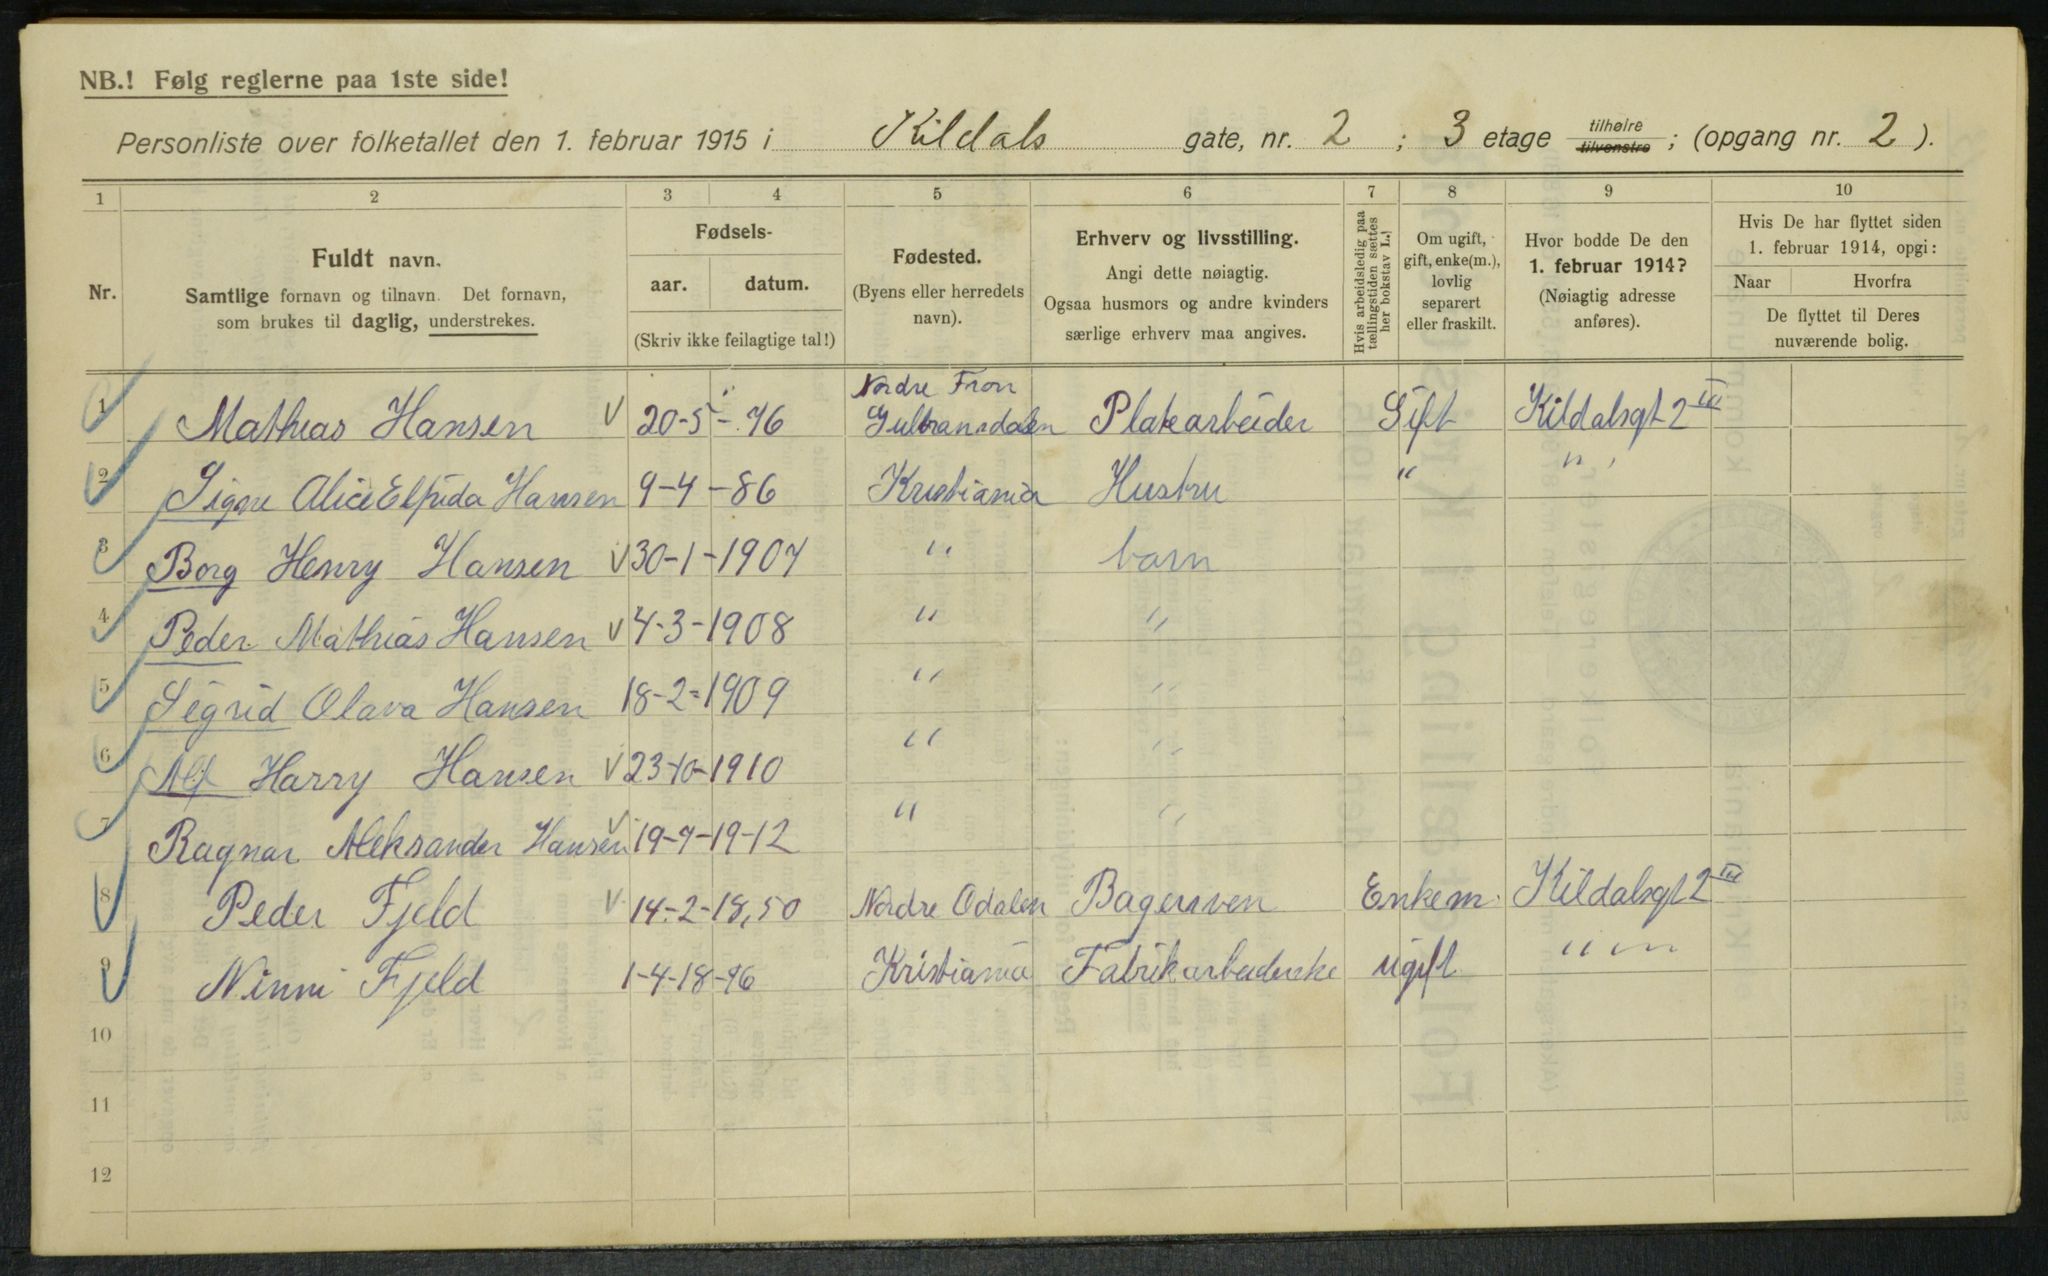 NB.! Følg reglerne paa 1ste side!
Personliste over folketallet den 1. februar 1915 i Kildals gate, nr. 2 ; 3 etage tilhøire tilvenstre ; (opgang nr. 2 ).
1 2 3 4 5 6 7 8 9 10
Nr.
Fuldt navn.
Samtlige fornavn og tilnavn. Det fornavn,
som brukes til daglig, understrekes.
Fødsels-
aar. datum.
(Skriv ikke feilagtige tal!)
Fødested.
(Byens eller herredets
navn).
Erhverv og livsstilling.
Angi dette nøiagtig.
Ogsaa husmors og andre kvinders
særlige erhverv maa angives.
Hvis arbeidsledig paa
tællingstiden sættes
her bokstav L.
Om ugift,
gift, enke(m.),
lovlig
separert
eller fraskilt.
Hvor bodde De den
1. februar 1914?
(Nøiagtig adresse
anføres).
Hvis De har flyttet siden
1. februar 1914, opgi:
Naar Hvorfra
De flyttet til Deres
nuværende bolig.
Nordre Fron
1 Mathias Hansen V 20-5-76 Gulbransdalen Platearbeider Gift Kildalsgt 2 III
2 Signe Alice Elfrida Hansen 9-4-86 Kristiania Hustru " "
3 Borg Henry Hansen V 30-1-1907 " barn
4 Peder Mathias Hansen V 4-3-1908 " "
5 Sigrid Olava Hansen 18-2-1909 " "
6 Alf Harry Hansen V 23-10-1910 " "
7 Ragnar Aleksander Hansen V 19-7-19-12 " "
8 Peder Fjeld V 14-2-18,50 Nordre Odalen Bagersven Enkem. Kildalsgt 2 III
9 Ninni Fjeld 1-4-18-96 Kristiania Fabrikarbeiderske ugift " "
10
11
12